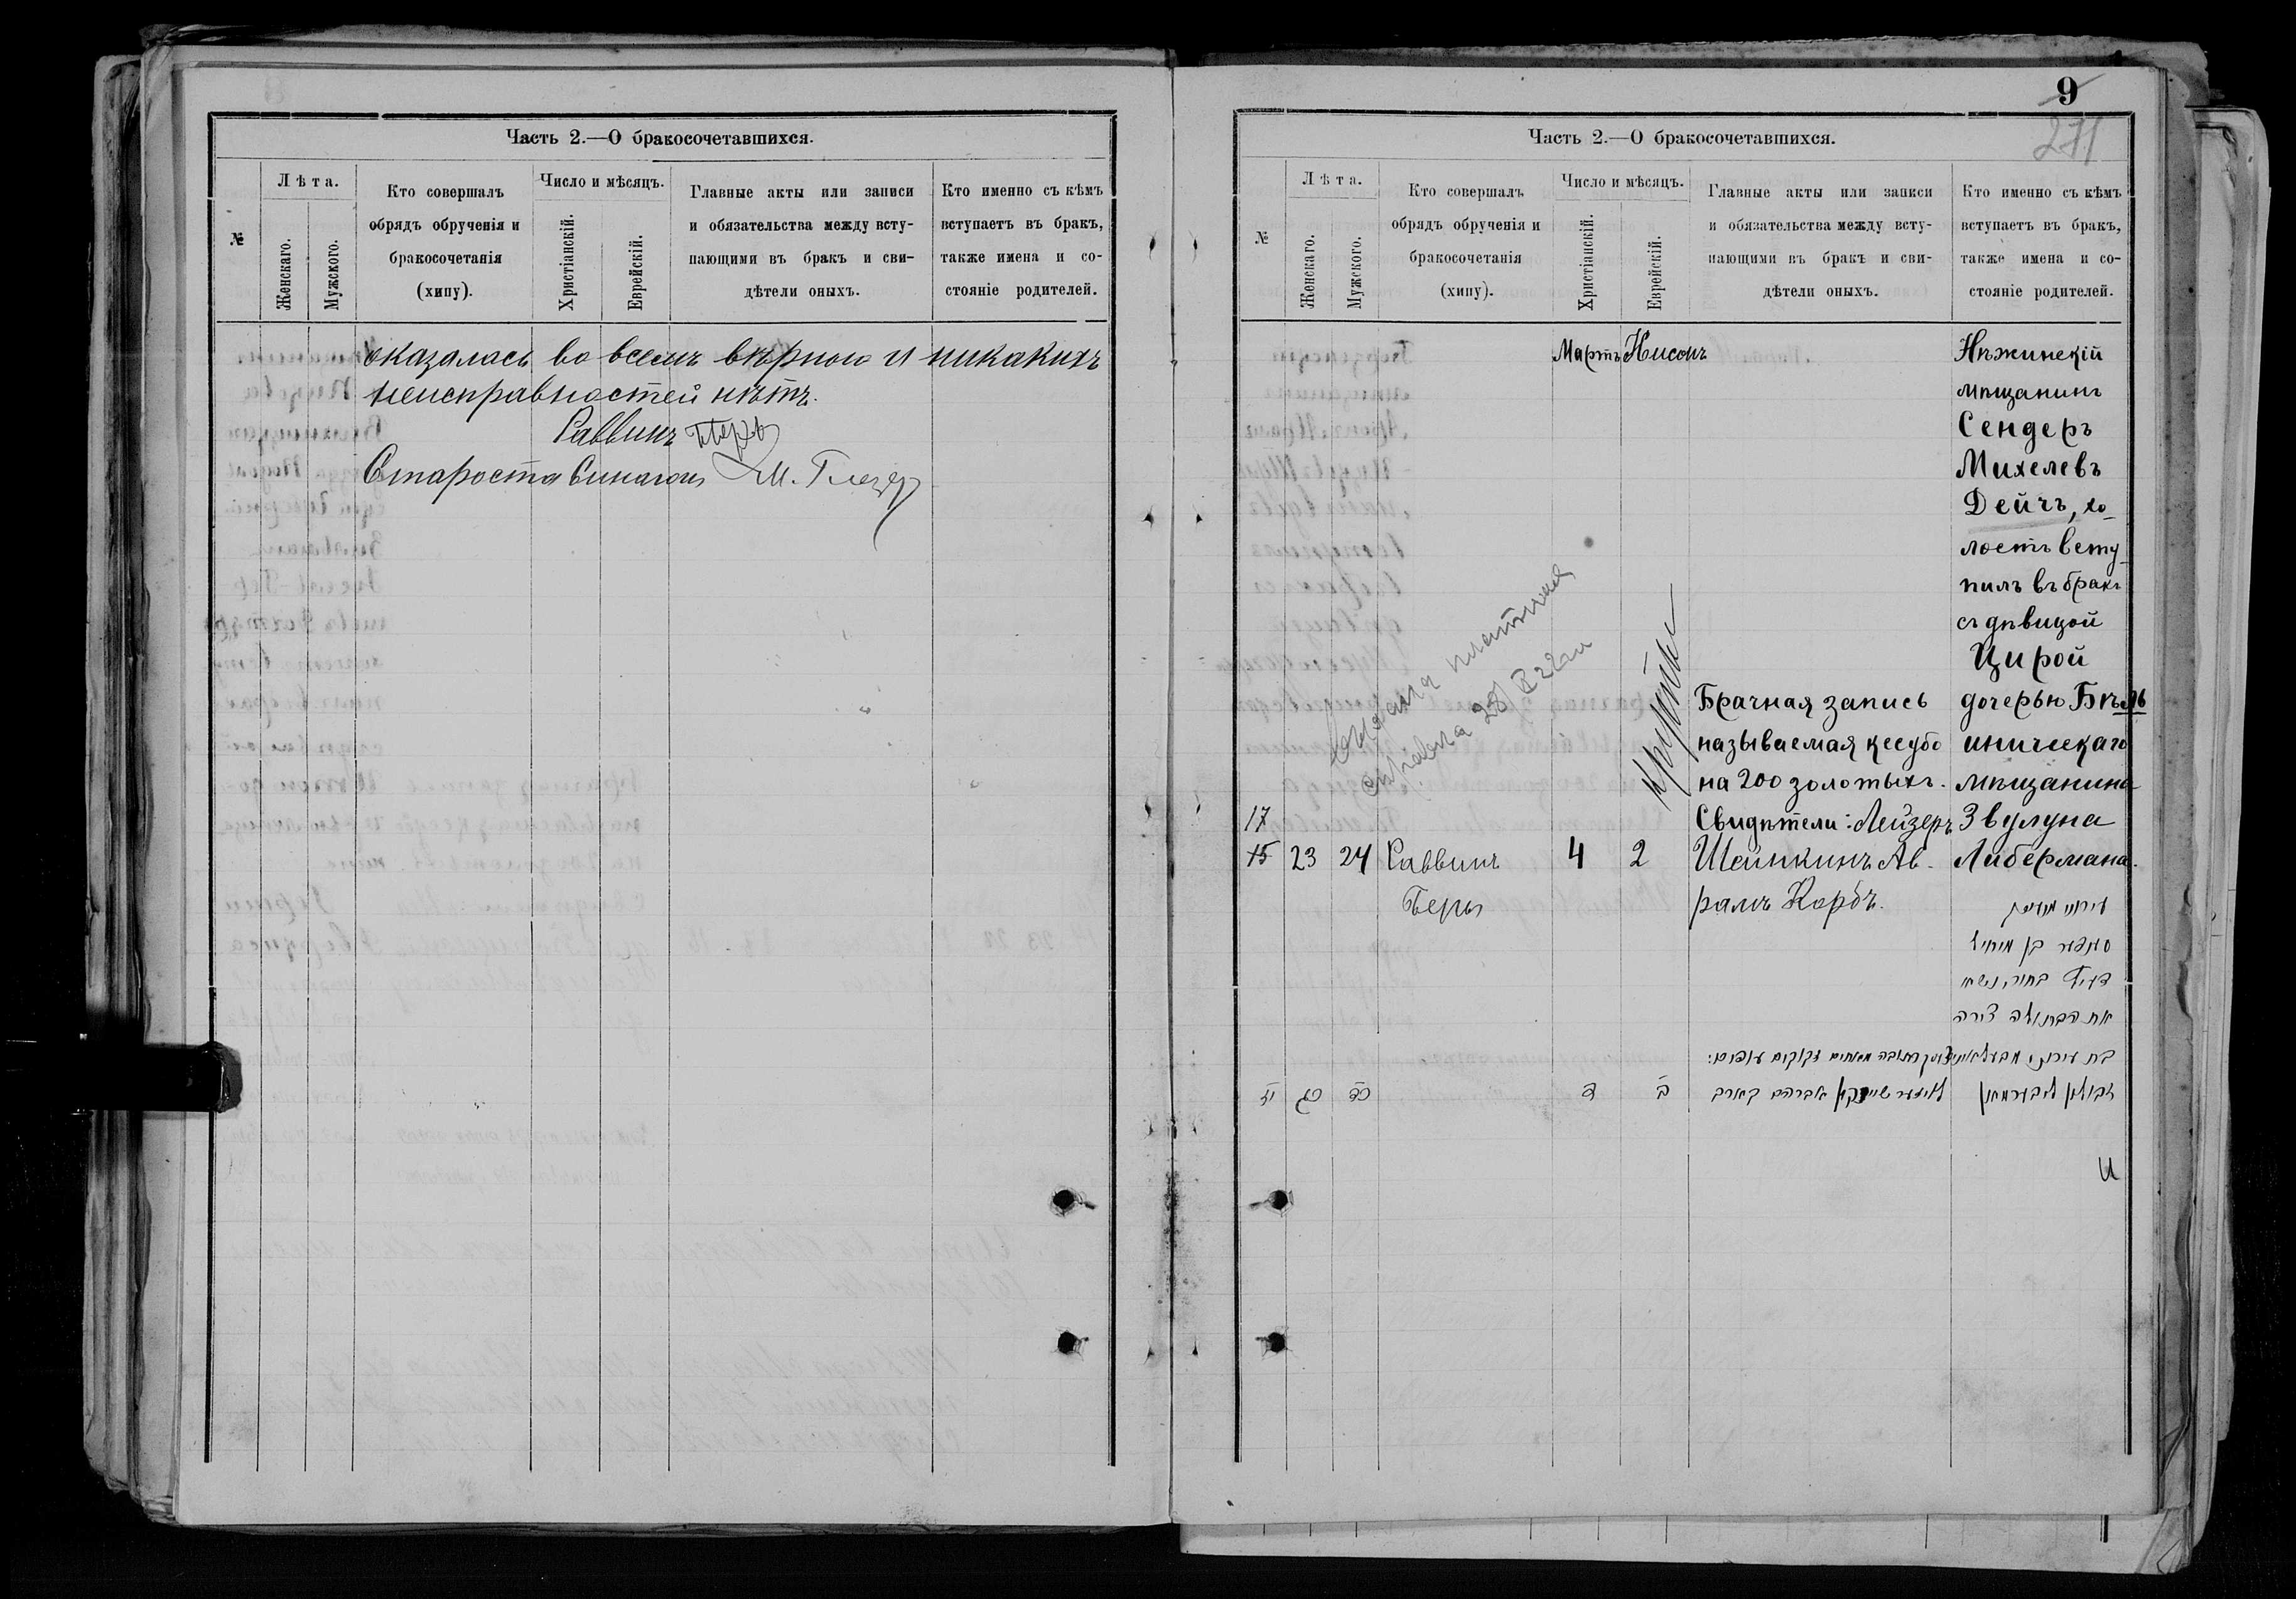 Часть 2.—О бракосочетавшихся.
№
Лѣта.
Женскаго.
Мужского.
Кто совершалъ
обрядъ обрученія и
бракосочетанія
(хипу).
Число и мѣсяцъ.
Христіанскій.
Еврейскій.
Главные акты или записи
и обязательства между всту-
пающими въ бракъ и сви-
дѣтели оныхъ.
Кто именно съ кѣмъ
вступаетъ въ бракъ,
также имена и со-
стояніе родителей.
оказалась во всемъ вѣрною и никакихъ
неисправностей нѣтъ.
Раввинъ
Староста М. Глезер
9
271
Часть 2.—О бракосочетавшихся.
№
Лѣта.
Женскаго.
Мужского.
Кто совершалъ
обрядъ обрученія и
бракосочетанія
(хипу).
Число и мѣсяцъ.
Христіанскій.
Еврейскій.
Главные акты или записи
и обязательства между всту-
пающими въ бракъ и сви-
дѣтели оныхъ.
Кто именно съ кѣмъ
вступаетъ въ бракъ,
также имена и со-
стояніе родителей.
17
15
23
24
Раввинъ
Беръ
Мартъ
4
Нисонъ
2
Брачная запись
называемая кесубо
на 200 золотыхъ.
Свидѣтели: Лейзеръ
Шейнкинъ Ав-
рамъ Корбъ.
Нѣжинскій
мѣщанинъ
Сендеръ
Михелевъ
Дейчъ, хо-
лостъ всту-
пилъ въ бракъ
съ дѣвицой
Цирой
дочерью Бѣль
иничскаго
мѣщанина
Звулуна
Либермана.
סענדער בן מיחיל
דייטש בחור, נשא
את הבתולה צירה
יז
כג
כד
ד
ב
לייזער שיינקין אברהם קארב
זבולון ליבערמאן